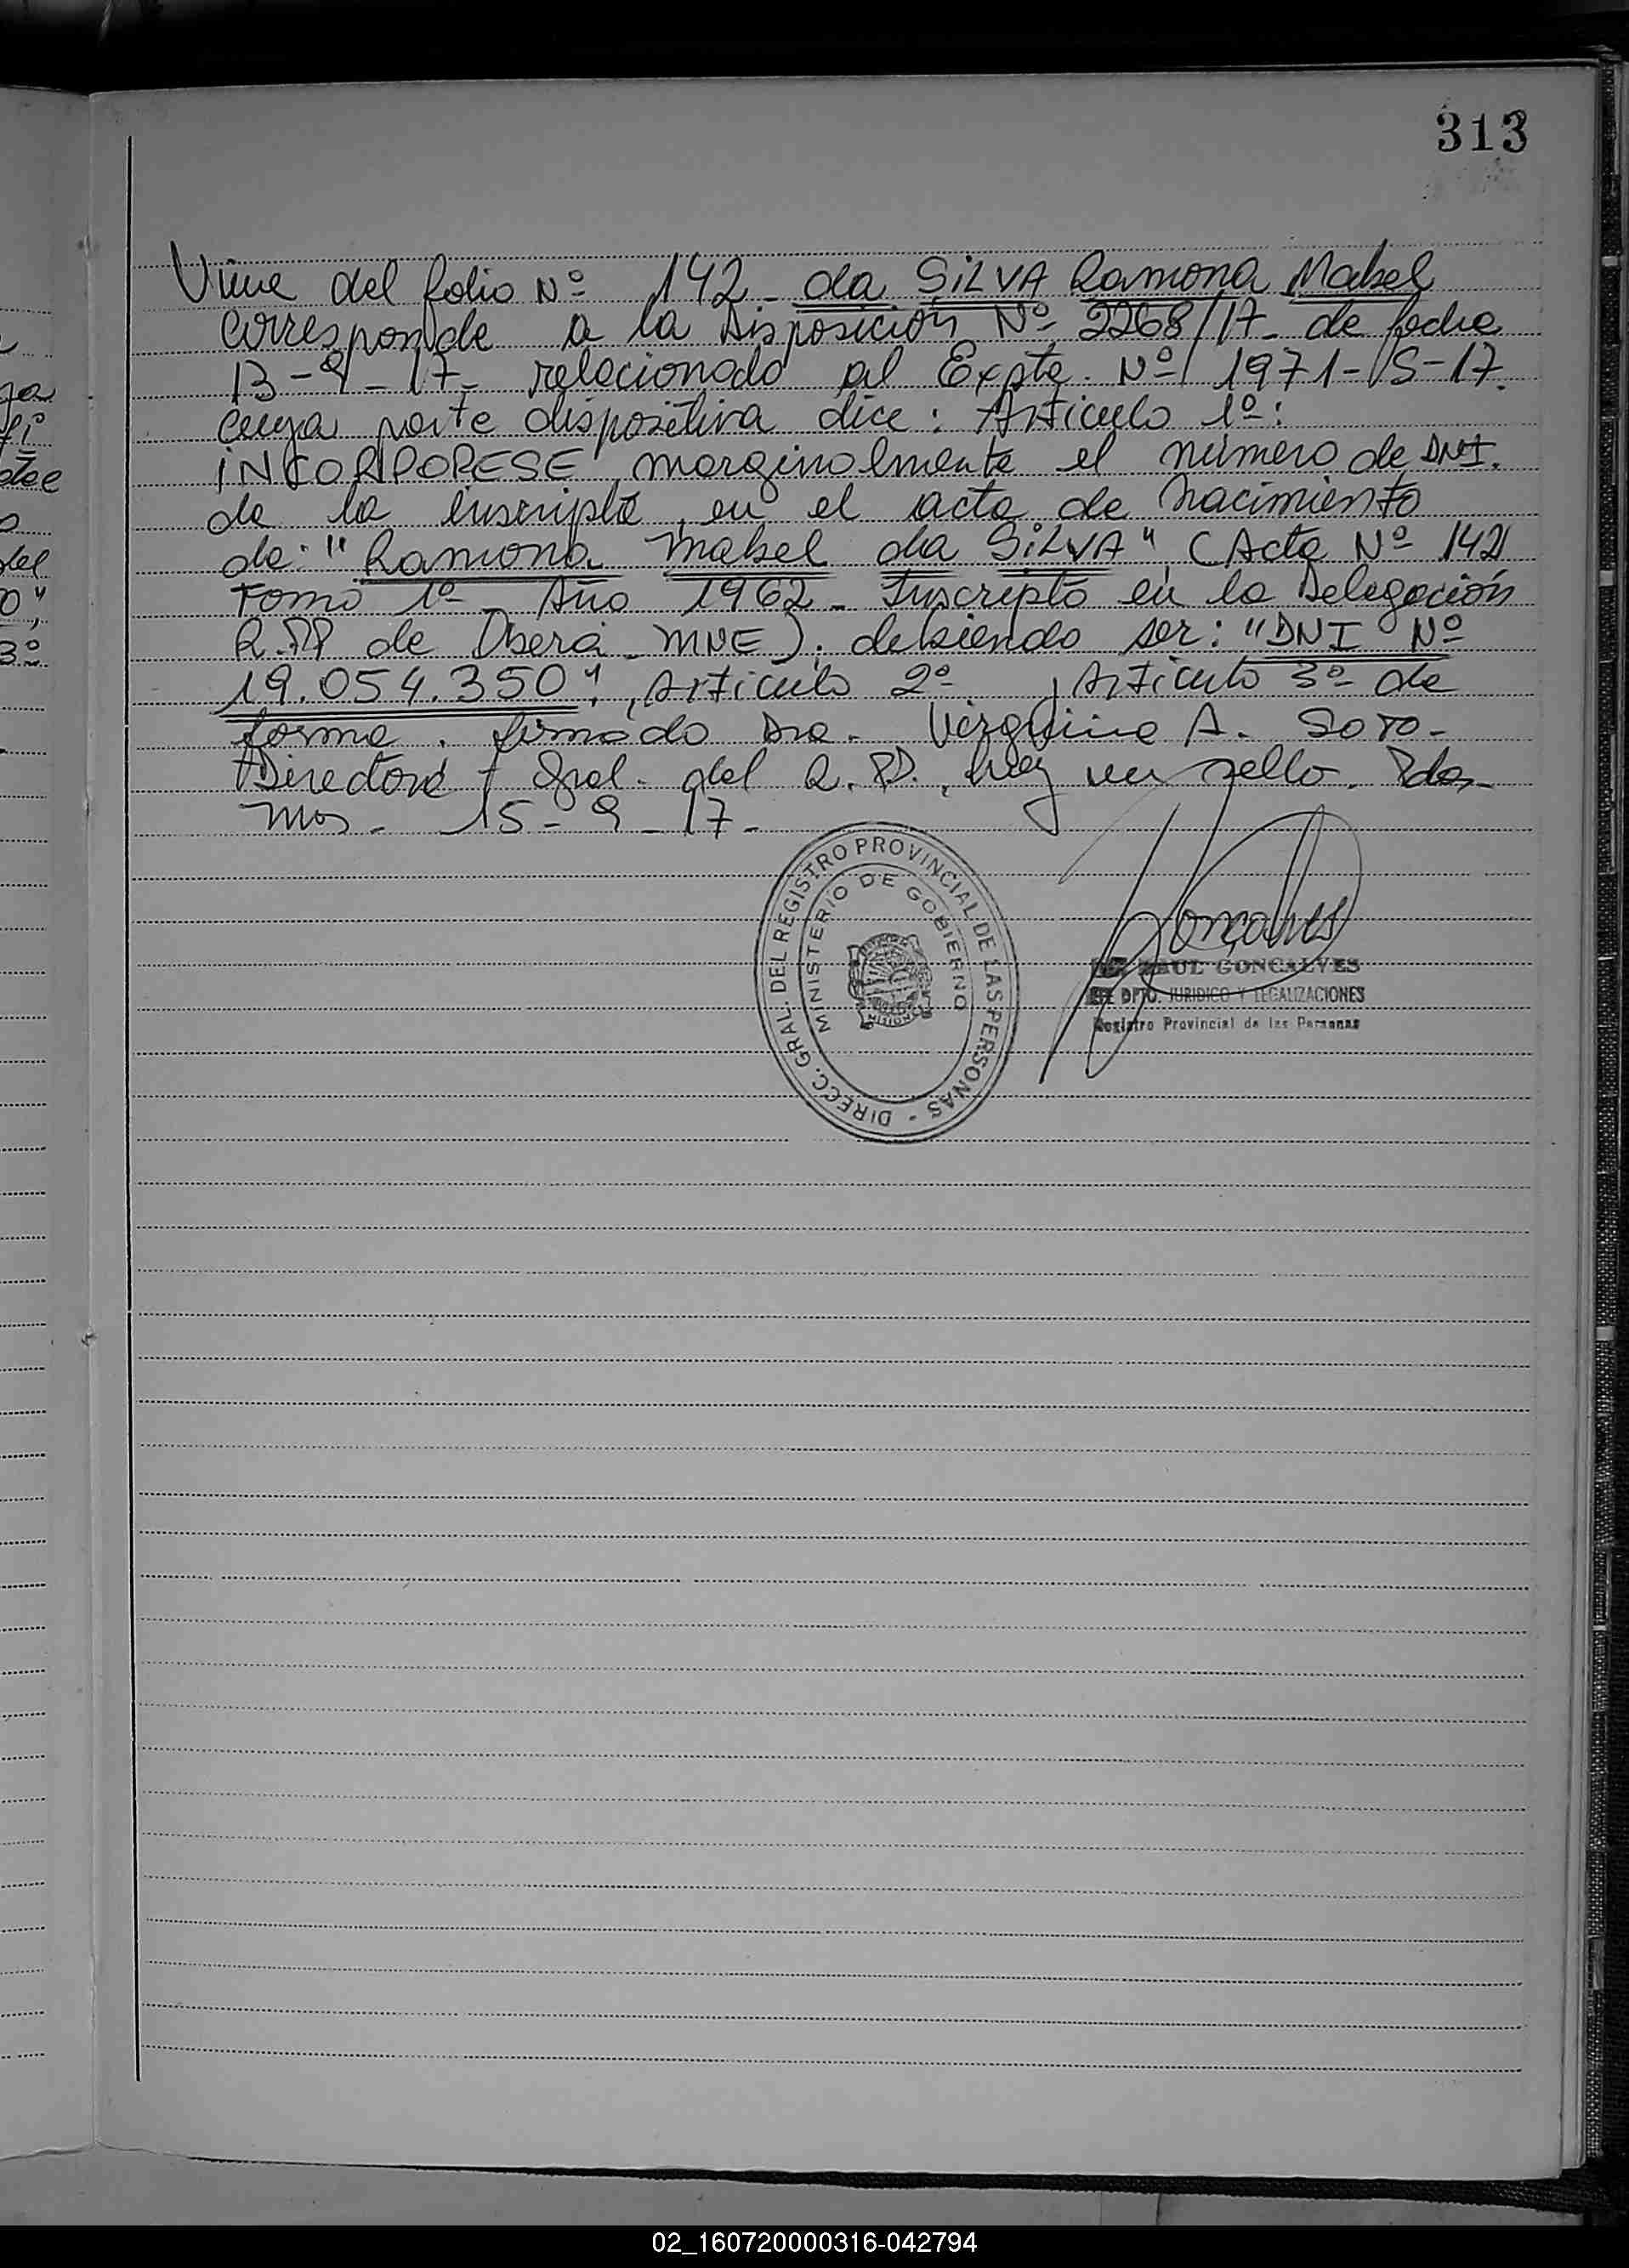 313
Viene del folio Nº 142 - da SiLVA Ramona Mabel
corresponde a la Disposición Nº 2268/17 - de fecha
13-9-17 - relacionado al Expte. Nº 1971-S-17.
cuya parte dispositiva dice: Artículo 1º:
iNCORPORESE marginalmente el número de DNI.
de la inscripta, en el acta de nacimiento
de: "Ramona Mabel da SiLVA", (Acta Nº 142
Tomo 1º - Año 1962 - Inscripto en la Delegación
R.PP de Oberá - MNE); debiendo ser: "DNI Nº
19.054.350", Artículo 2º , Artículo 3º de
forma. firmado Dra. Virginia A. Soto-
Directora Gral. del R.PP., hay un sello. Pdas-
Mns - 15-9-17-
DIRECC. GRAL. DEL REGISTRO PROVINCIAL DE LAS PERSONAS -
MINISTERIO DE GOBIERNO
MISIONES
Gonçalves
RAUL GONCALVES
DPTO. JURIDICO Y LEGALIZACIONES
Registro Provincial de las Personas
ga
tee
del
o",
3º
02_160720000316-042794